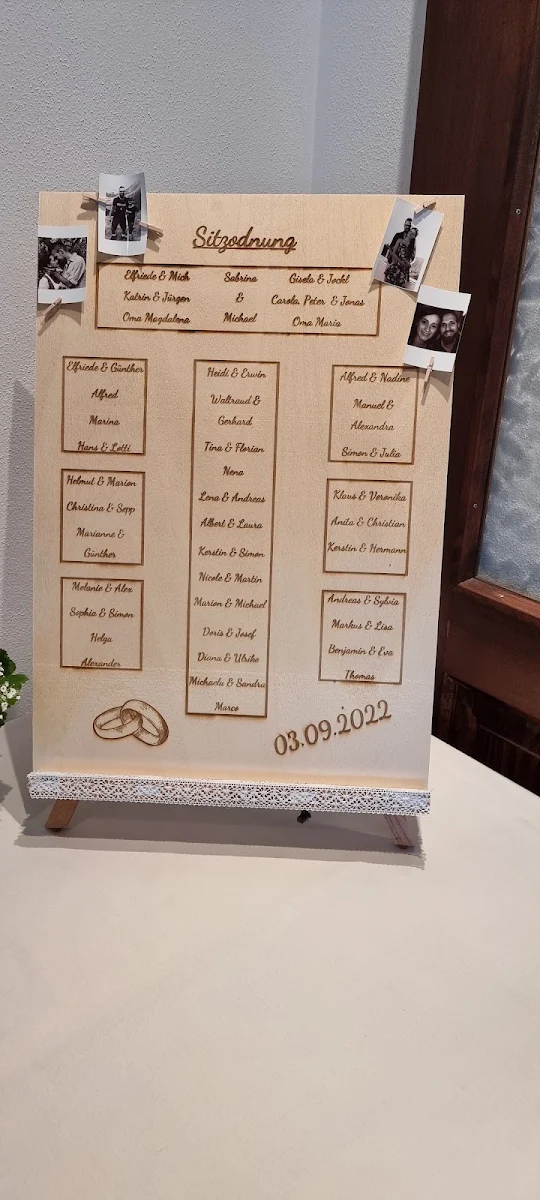 Sitzodnung
Elfriede & Mich
Katrin & Jürgen
Oma Magdalena
Sabrina
&
Michael
Gisela & Jockl
Carola, Peter & Jonas
Oma Maria
Elfriede & Günther
Alfred
Marina
Hans & Lotti
Helmut & Marion
Christina & Sepp
Marianne &
Günther
Melanie & Alex
Sophia & Simon
Helga
Alexander
Heidi & Erwin
Waltraud &
Gerhard
Tina & Florian
Nena
Lena & Andreas
Albert & Laura
Kerstin & Simon
Nicole & Martin
Marion & Michael
Doris & Josef
Diana & Ulrike
Michaela & Sandra
Marco
Alfred & Nadine
Manuel &
Alexandra
Simon & Julia
Klaus & Veronika
Anita & Christian
Kerstin & Hermann
Andreas & Sylvia
Markus & Lisa
Benjamin & Eva
Thomas
03.09.2022